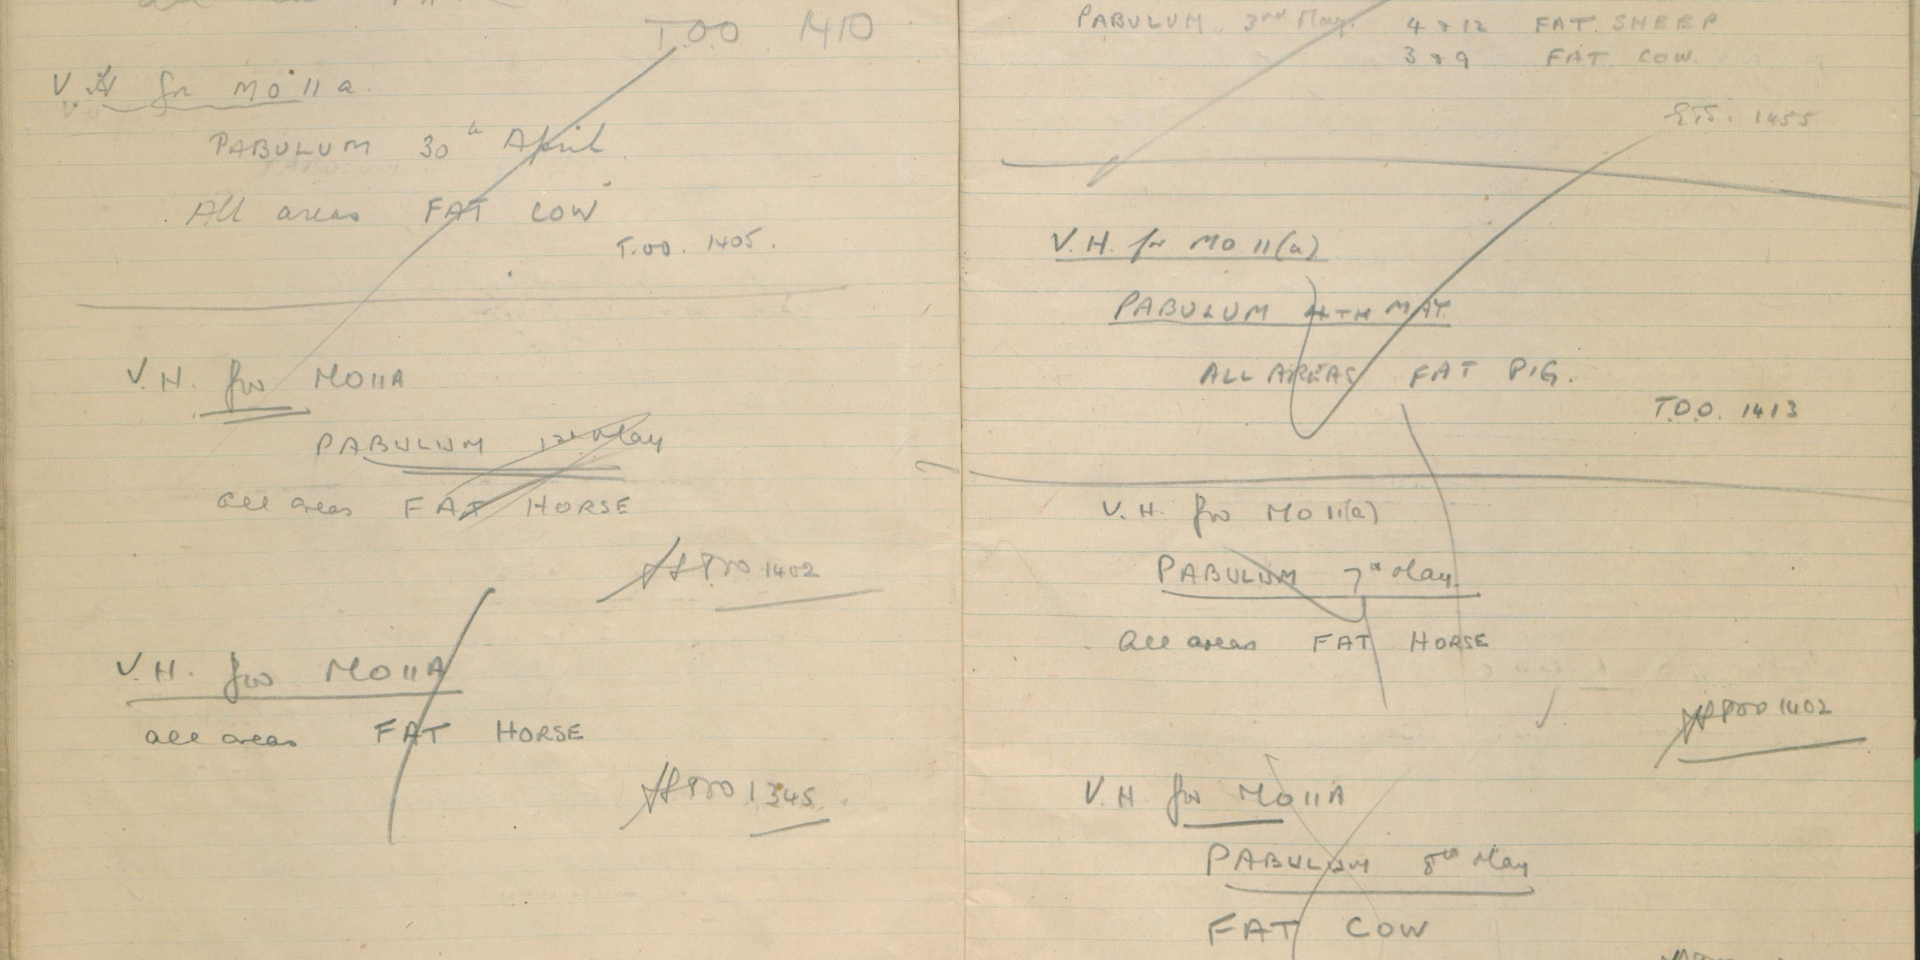 T.OO 1410
V.H for MO 11a.
PABULUM 30th April.
All areas FAT COW
T.OO. 1405.
V.H. for MO11A
PABULUM 1st May
all areas FAT HORSE
TOO 1402
V.H. for MO11A
all areas FAT HORSE
TOO 1345.
PABULUM 3rd May. 4 & 12 FAT SHEEP
3 & 9 FAT COW.
1455
V.H. for MO 11(a)
PABULUM 4TH MAY.
ALL AREAS FAT PIG.
T.O.O. 1413
V.H. for MO 11(a)
PABULUM 7th May.
all areas FAT HORSE
TOO 1402
V.H for MO11A
PABULUM 8th May
FAT COW